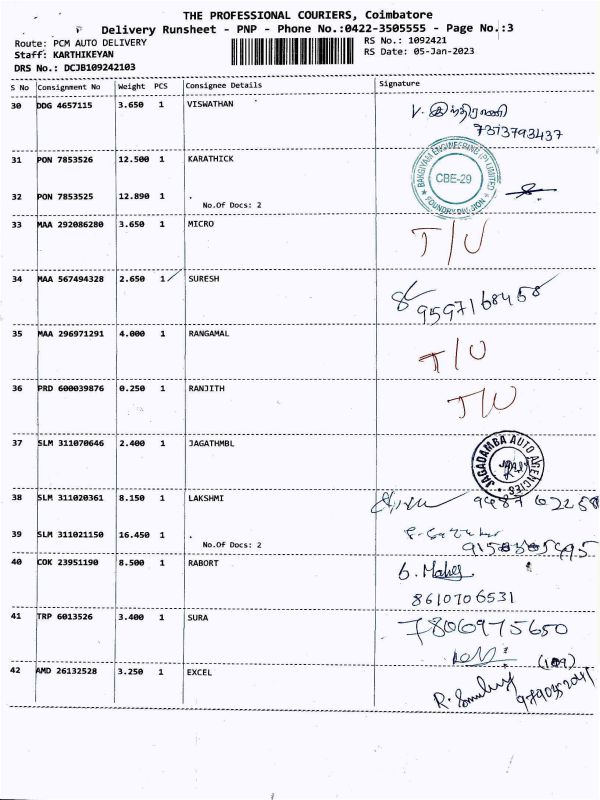 THE PROFESSIONAL COURIERS, Coimbatore
Delivery Runsheet - PNP - Phone No.:0422-3505555 - Page No.:3
Route: PCM AUTO DELIVERY RS No.: 1092421
Staff: KARTHIKEYAN RS Date: 05-Jan-2023
DRS No.: DCJB109242103
S No Consignment No Weight PCS Consignee Details Signature
30 DDG 4657115 3.650 1 VISWATHAN V. இந்திராணி
7373793437
31 PON 7853526 12.500 1 KARATHICK
BAKGIYAM ENGINEERING (P) LIMITED
CBE-29
FOUNDRY DIVISION
32 PON 7853525 12.890 1 .
No.Of Docs: 2
33 MAA 292086280 3.650 1 MICRO T/U
34 MAA 567494328 2.650 1 SURESH
9597168458
35 MAA 296971291 4.000 1 RANGAMAL T/U
36 PRD 600039876 0.250 1 RANJITH T/U
37 SLM 311070646 2.400 1 JAGATHMBL
JAGADAMBA AUTO AGENCIES
38 SLM 311020361 8.150 1 LAKSHMI
39 SLM 311021150 16.450 1 .
No.Of Docs: 2
40 COK 23951190 8.500 1 RABORT
8610706531
41 TRP 6013526 3.400 1 SURA 7806975650
(109)
42 AMD 26132528 3.250 1 EXCEL